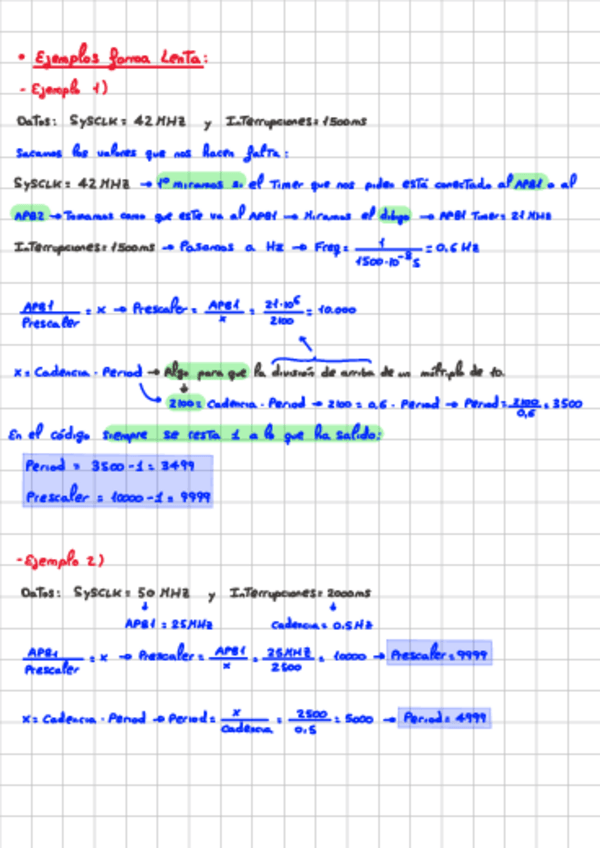 • Ejemplos forma lenta:
- Ejemplo 1)
Datos: SYSCLK = 42 MHz y Interrupciones = 1500ms
Sacamos los valores que nos hacen falta:
SYSCLK = 42 MHz → 1º miramos si el Timer que nos piden está conectado al APB1 o al
APB2 → Tomamos como que este va al APB1 → Miramos el dibujo → APB1 Timer = 21 MHz
Interrupciones = 1500ms → Pasamos a Hz → Freq = 1 / 1500·10⁻³ s = 0.6 Hz
APB1 / Prescaler = x → Prescaler = APB1 / x = 21·10⁶ / 2100 = 10.000
x = Cadencia · Period → Algo para que la división de arriba de un múltiplo de 10.
2100 = Cadencia · Period → 2100 = 0,6 · Period → Period = 2100 / 0,6 = 3500
En el código siempre se resta 1 a lo que ha salido:
Period = 3500 - 1 = 3499
Prescaler = 10000 - 1 = 9999
- Ejemplo 2)
Datos: SYSCLK = 50 MHz y Interrupciones = 2000ms
APB1 = 25MHz Cadencia = 0.5Hz
APB1 / Prescaler = x → Prescaler = APB1 / x = 25MHz / 2500 = 10000 → Prescaler = 9999
x = Cadencia · Period → Period = x / Cadencia = 2500 / 0.5 = 5000 → Period = 4999